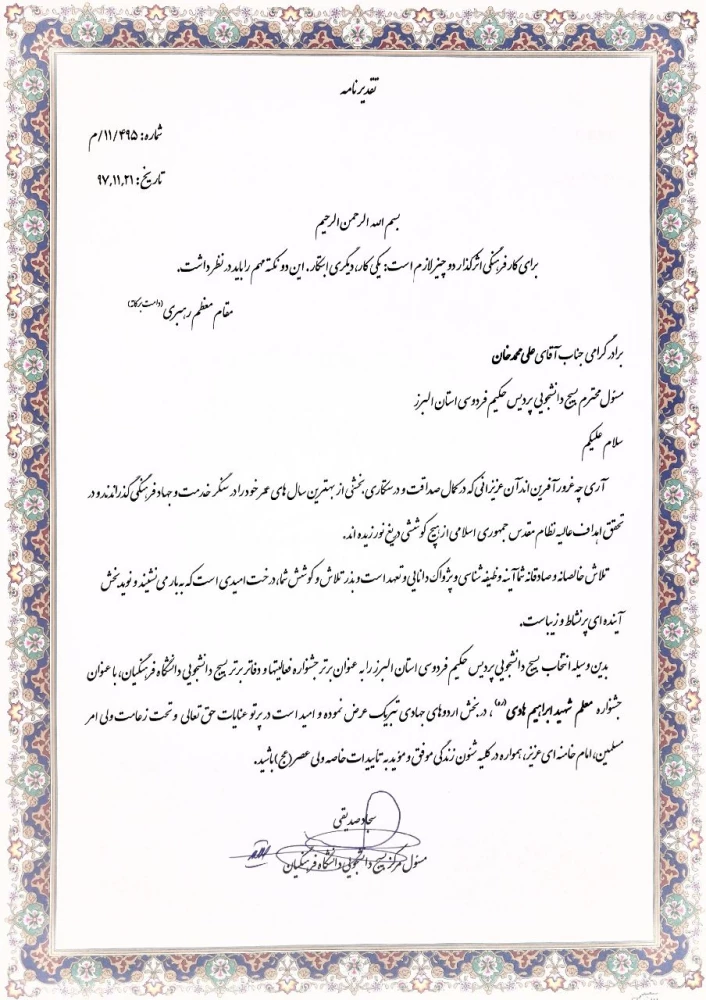 تقدیرنامه
شماره: ۱۱/۴۹۵/م
تاریخ: ۹۷,۱۱,۲۱
بسم الله الرحمن الرحیم
برای کار فرهنگی اثرگذار دو چیز لازم است: یکی کار، دیگری ابتکار. این دو نکته مهم را باید در نظر داشت.
مقام معظم رهبری (دامت برکاته)
برادر گرامی جناب آقای علی محمدخان
مسئول محترم بسیج دانشجویی پردیس حکیم فردوسی استان البرز
سلام علیکم
آری چه غرورآفرین اند آن عزیزانی که در کمال صداقت و درستکاری، بخشی از بهترین سال های عمر خود را در سنگر خدمت و جهاد فرهنگی گذرانده‌اند و در
تحقق اهداف عالیه نظام مقدس جمهوری اسلامی از هیچ کوششی دریغ نورزیده اند.
تلاش خالصانه و صادقانه شما آینه وظیفه شناسی و پژواک دانایی و تعهد است و بذر تلاش و کوشش شما، درخت امیدی است که به بار می نشیند و نوید بخش
آینده ای پر نشاط و زیباست.
بدین وسیله انتخاب بسیج دانشجویی پردیس حکیم فردوسی استان البرز را به عنوان برتر جشنواره فعالیتها و دفاتر برتر بسیج دانشجویی دانشگاه فرهنگیان، با عنوان
جشنواره معلم شهید ابراهیم هادی (ره)، در بخش اردوهای جهادی تبریک عرض نموده و امید است در پرتو عنایات حق تعالی و تحت زعامت ولی امر
مسلمین، امام خامنه ای عزیز، همواره در کلیه شئون زندگی موفق و مؤید به تاییدات خاصه ولی عصر (عج) باشید.
سجاد صدیقی
مسئول مرکز بسیج دانشجویی دانشگاه فرهنگیان